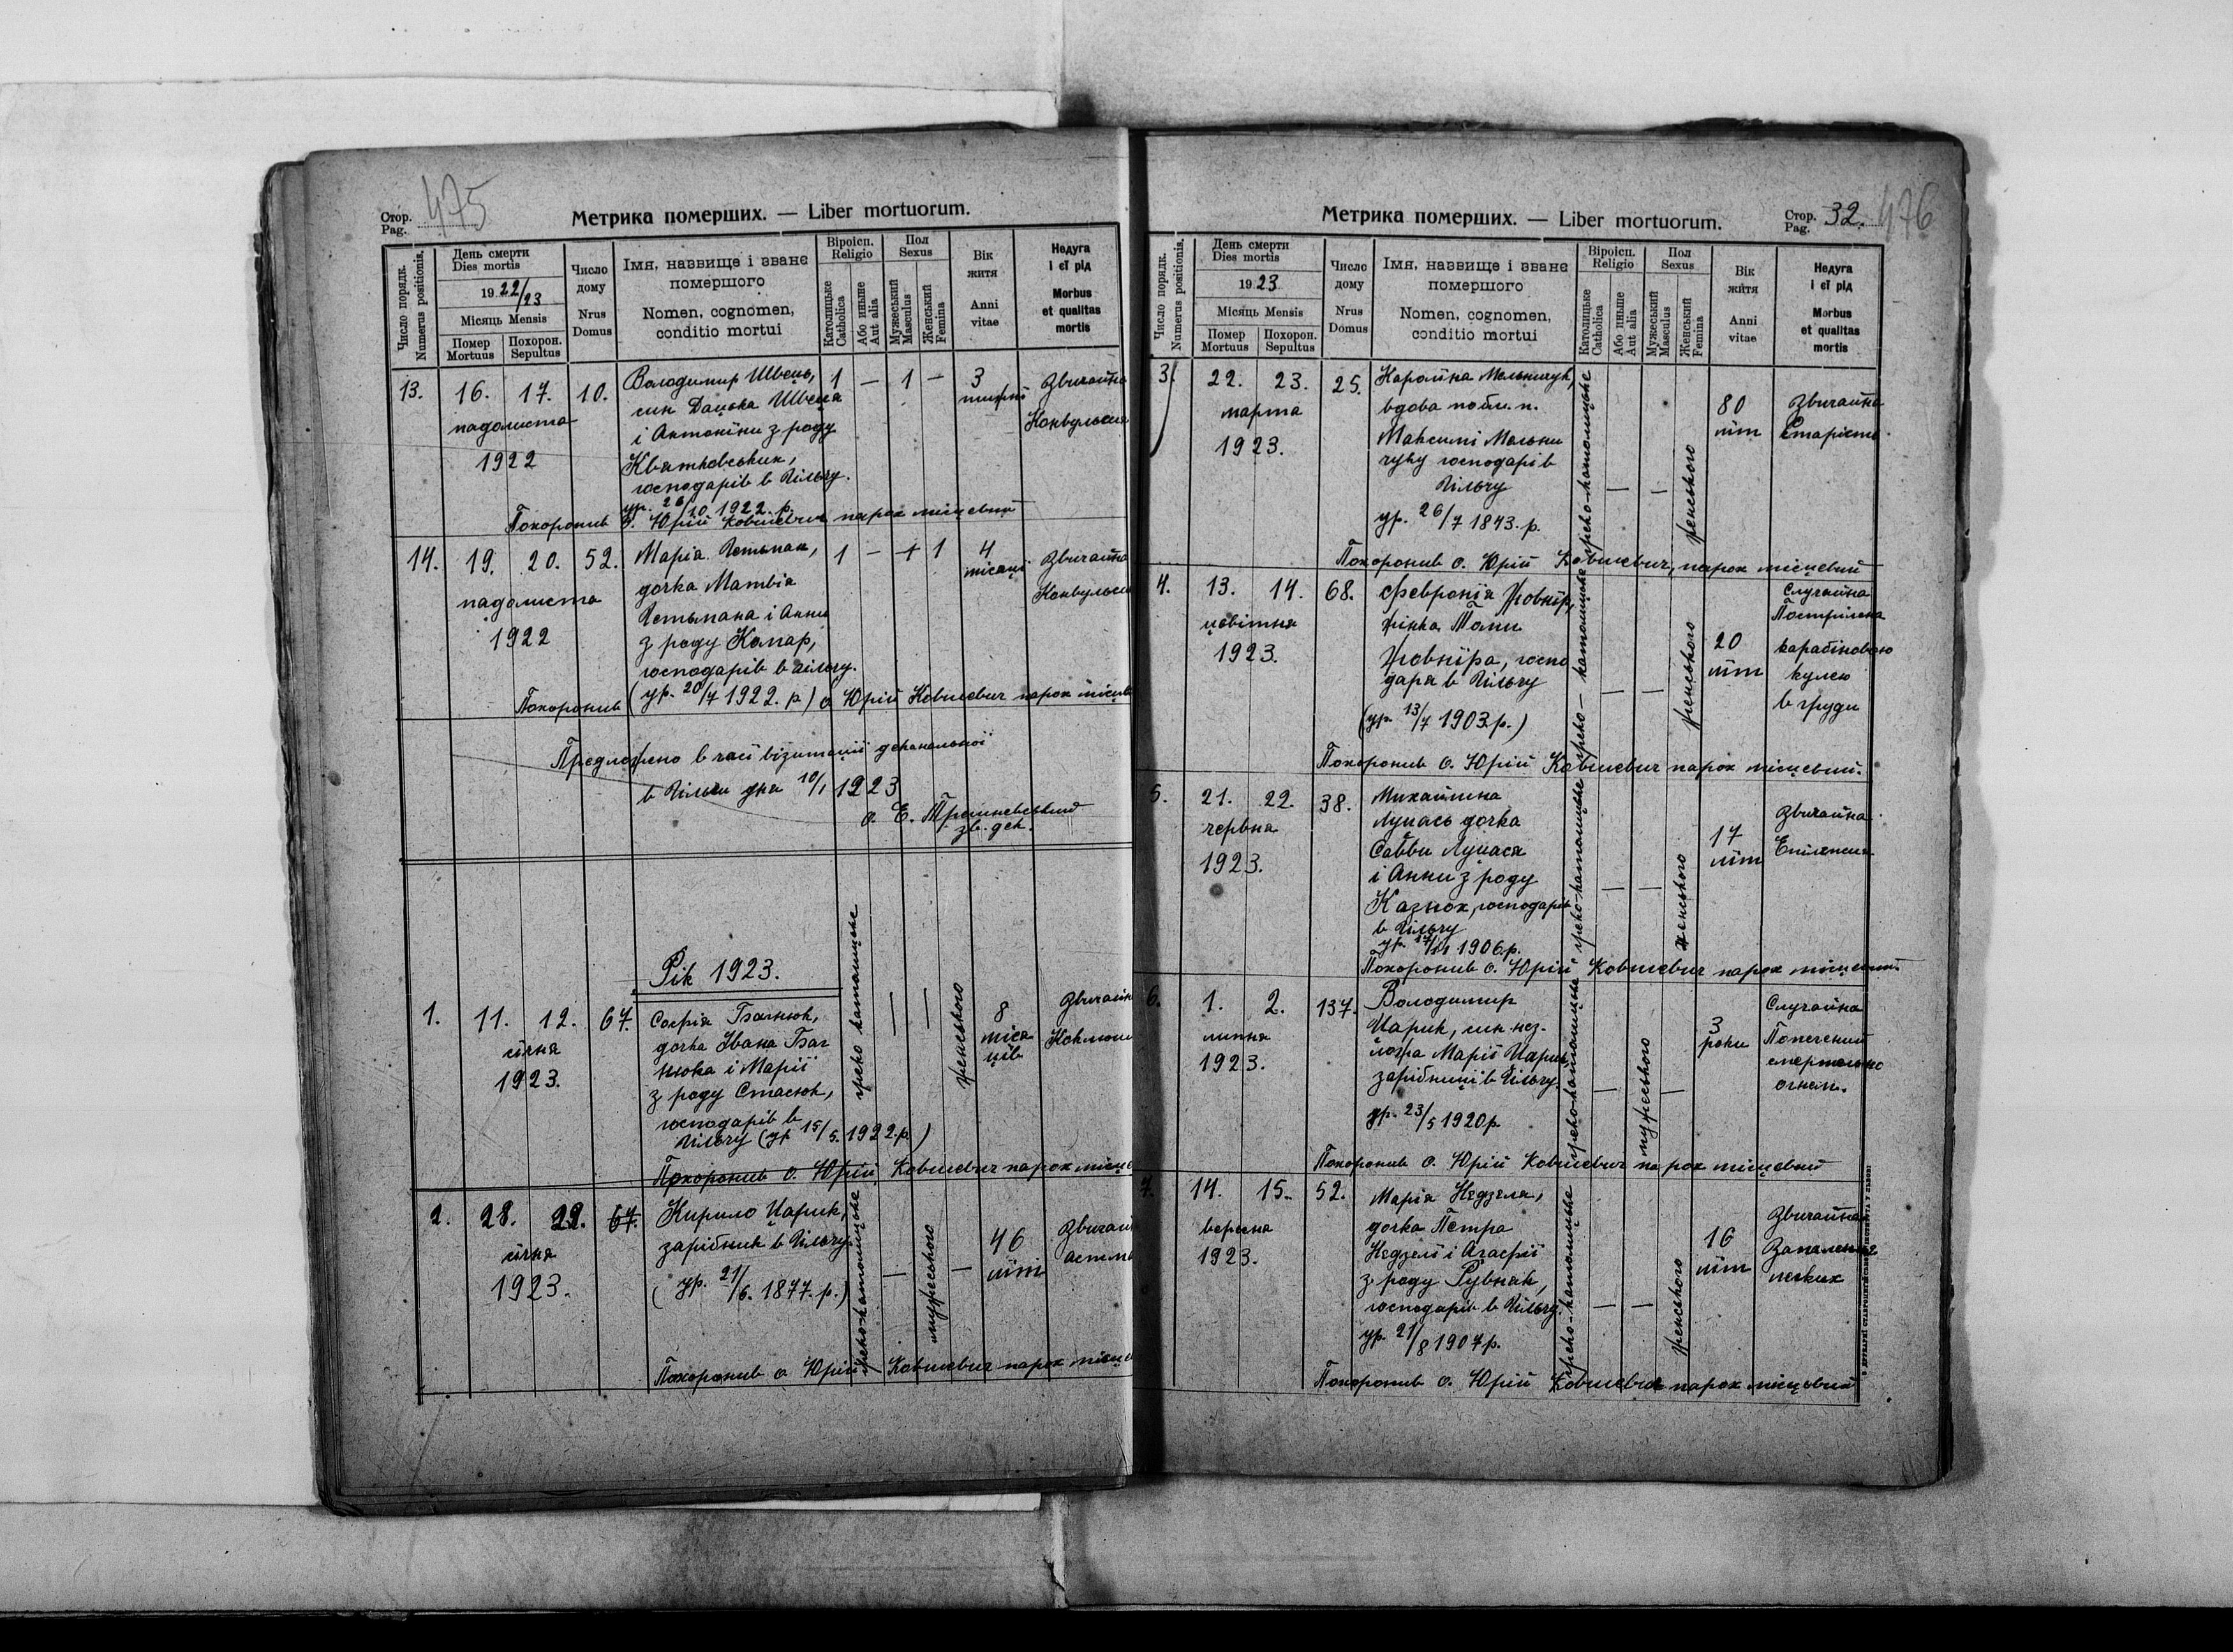 Стор.
Pag.
475
Метрика померших. — Liber mortuorum.
Число порядк.
Numerus positionis.
День смерти
Dies mortis
1922/23
Місяць Mensis
Помер
Mortuus
Похорон.
Sepultus
Число
дому
Nrus
Domus
Імя, назвище і званє
помершого
Nomen, cognomen,
conditio mortui
Віроісп.
Religio
Католицьке
Catholica
Або иньше
Aut alia
Пол
Sexus
Мужеський
Masculus
Женський
Femina
Вік
житя
Anni
vitae
Недуга
і єї рід
Morbus
et qualitas
mortis
13. 16. 17. 10. Володимир Швець, 1 — 1 — 3 Звичайна
син Дацька Швеця
падолиста Конвульсия
і Антоніни з роду
1922
Квятковських,
господарів в Вільчу.
ур. 26/10 1922. р.
Похоронив о. Юрій Ковшевич парох місцевий
14. 19. 20. 52. Марія Гетьман, 1 — 1 4 Звичайна
місяці
дочка Матвія
падолиста
Гетьмана і Анни
1922
з роду Комар,
господарів в Вільчу.
(ур. 20/7 1922. р)
Похоронив о Юрій Ковшевич парох місцев
Предложено в часі візитації деканальної
в Вільчи дня 10/I 1923
зв. дек.
Рік 1923.
1. 11. 12. 67. Софія 8 Звичайн
дочка Івана
січня
місяців
1923.
і Марії
з роду Стасюк,
господарів в
Вільчу (ур 15/5. 1922. р.)
греко католицьке
— —
женського
Похоронив о. Юрій Ковшевич парох місце
2. 28. 29. 67. Кирило Царик, 46 Звичайн
зарібник в Вільчу астма
січня
літ
1923.
(ур. 21/6. 1877. р.)
греко-католицьке
—
мужеського
—
Похоронив о Юрій Ковшевич парох місце
Метрика померших. — Liber mortuorum.
Стор.
Pag.
32.
476
Число порядк.
Numerus positionis.
День смерти
Dies mortis
1923
Місяць Mensis
Помер
Mortuus
Похорон.
Sepultus
Число
дому
Nrus
Domus
Імя, назвище і званє
помершого
Nomen, cognomen,
conditio mortui
Віроісп.
Religio
Католицьке
Catholica
Або иньше
Aut alia
Пол
Sexus
Мужеський
Masculus
Женський
Femina
Вік
житя
Anni
vitae
Недуга
і єї рід
Morbus
et qualitas
mortis
3. 22. 23. 25. Кароліна Мельничук, 80 Звичайна
вдова по бл. п.
марта літ Старість
Максимі Мельни
1923.
чуку господарів
Вільчу
ур. 26/7 1843. р.
греко-католицьке
— —
женського
Похоронив о. Юрій Ковшевич, парох місцевий
4. 13. 14. 68. Февронія Жовнір, 20 Случайна
Пострілена
жінка Томи
цвітня
карабіновою
1923.
Жовніра, госпо
літ кулею
даря в Вільчу
в груди
(ур. 13/7 1903 р.)
греко-католицьке
— —
женського
Похоронив о. Юрій Ковшевич парох місцевий.
5. 21. 22. 38. Михайлина 17 Звичайна
Лупась дочка
червня
літ Епілепсия
Савви Лупася
1923.
і Анни з роду
господарів
в Вільчу
ур. 17/11 1906 р.
греко-католицьке
— —
женського
Похоронив о. Юрій Ковшевич парох місцевий.
6. 1. 2. 137. Володимир 3 Случайна
Царик, син нез-
липня
роки Попечений
Марії Царик,
1923.
смертельно
зарібниці в Вільчу
огнем.
ур. 23/5 1920 р
греко-католицьке
—
мужеського
—
Похоронив о. Юрій Ковшевич парох місцевий
7. 14. 15. 52. Марія Недзеля, 16 Звичайна
дочка Петра
вересня
Запаленє
Недзелі і Агафії
1923.
літ легких
з роду Рувнак,
господарів в Вільчу.
ур. 21/8 1907 р.
греко-католицьке
— —
женського
Похоронив о. Юрій Ковшевич парох місцевий